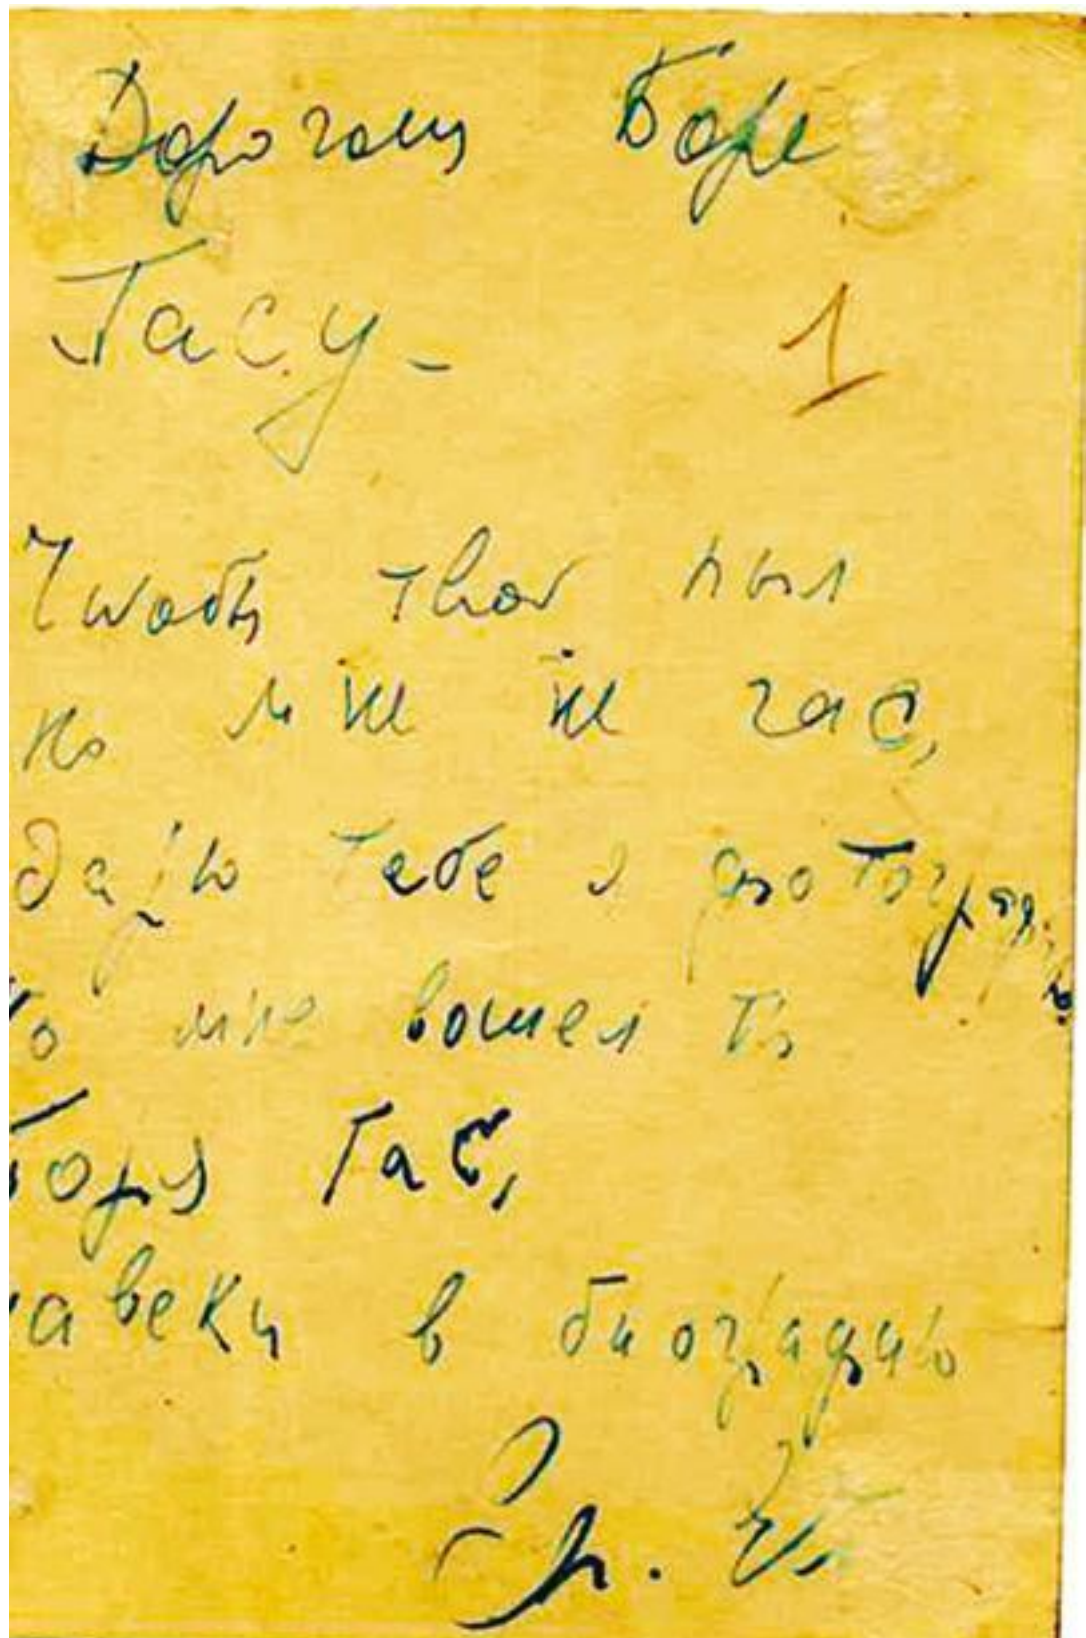 Дорогому Боре
Гасу - 1
Чтобы твой пыл
ко мне не гас,
дарю тебе я фотографию
ко мне вошел ты
Боря Гас,
навеки в биографию